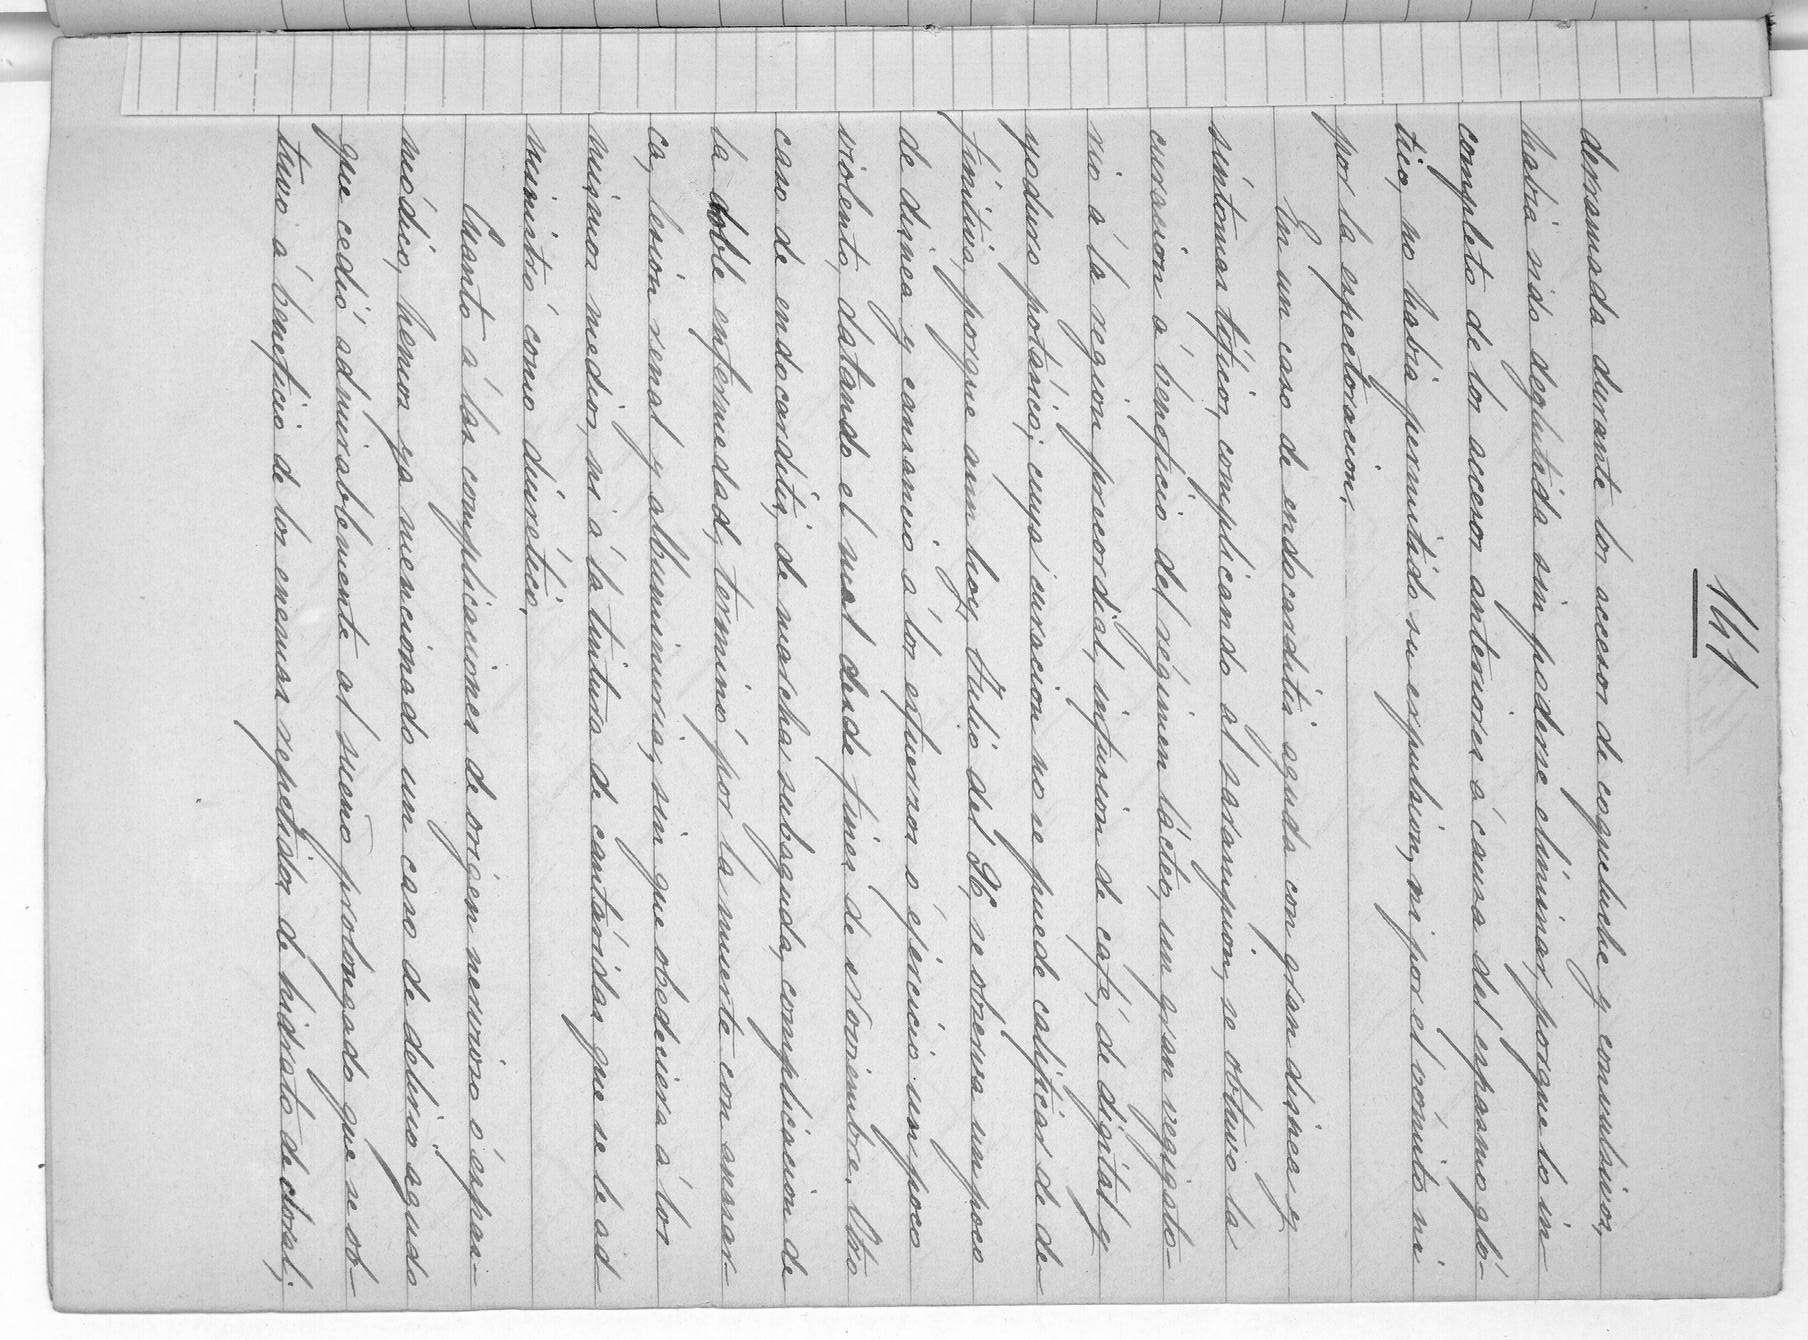 141
derramada durante los accesos de coqueluche y convulsivos,
habia sido deglutida sin poderse eliminar, porque lo in-
completo de los accesos anteriores á causa del espasmo gló-
tico, no habia permitido su expulsion, ni por el vómito ni
por la espectoracion.
En un caso de endocarditis aguda con gran disnea y
síntomas tíficos, complicando al sarampion, se obtuvo la
curacion á beneficio del régimen lácteo, un gran vegigato-
rio á la region precordial, infusion de café, de digital y
yoduro potásico; cuya curacion no se puede calificar de de-
finitiva, porque aun hoy, Julio del 96, se observa un poco
de disnea y cansancio á los esfuerzos ó ejercicio un poco
violento, datando el mal desde fines de Noviembre. Otro
caso de endocarditis, de marcha subaguda, complicacion de
la doble enfermedad, terminó por la muerte con anasar-
ca, lesión renal y albuminuria, sin que obedeciera á los
mismos medios, ni á la tintura de cantáridas que se le ad-
ministró como diurético.
Cuanto á las complicaciones de origen nervioso ó espas-
módico, hemos ya mencionado un caso de delirio agudo
que cedió admirablemente al sueño prolongado que se ob-
tuvo á beneficio de los enemas repetidos de hidrato de cloral;